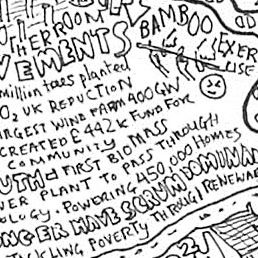 HER ROOM
BAMBOO EXER
ISE
VEMENTS
million trees planted
O₂ UK REDUCTION
ARGEST WIND FARM 400 GW
CREATED £442K FUND FOR
COMMUNITY
UTH & FIRST BIOMASS
WER PLANT TO PASS THROUGH
OLOGY. POWERING 450,000 HOMES
NGER WAVE SCRUM DOMINAN
TACKLING POVERTY THROUGH RENEWA